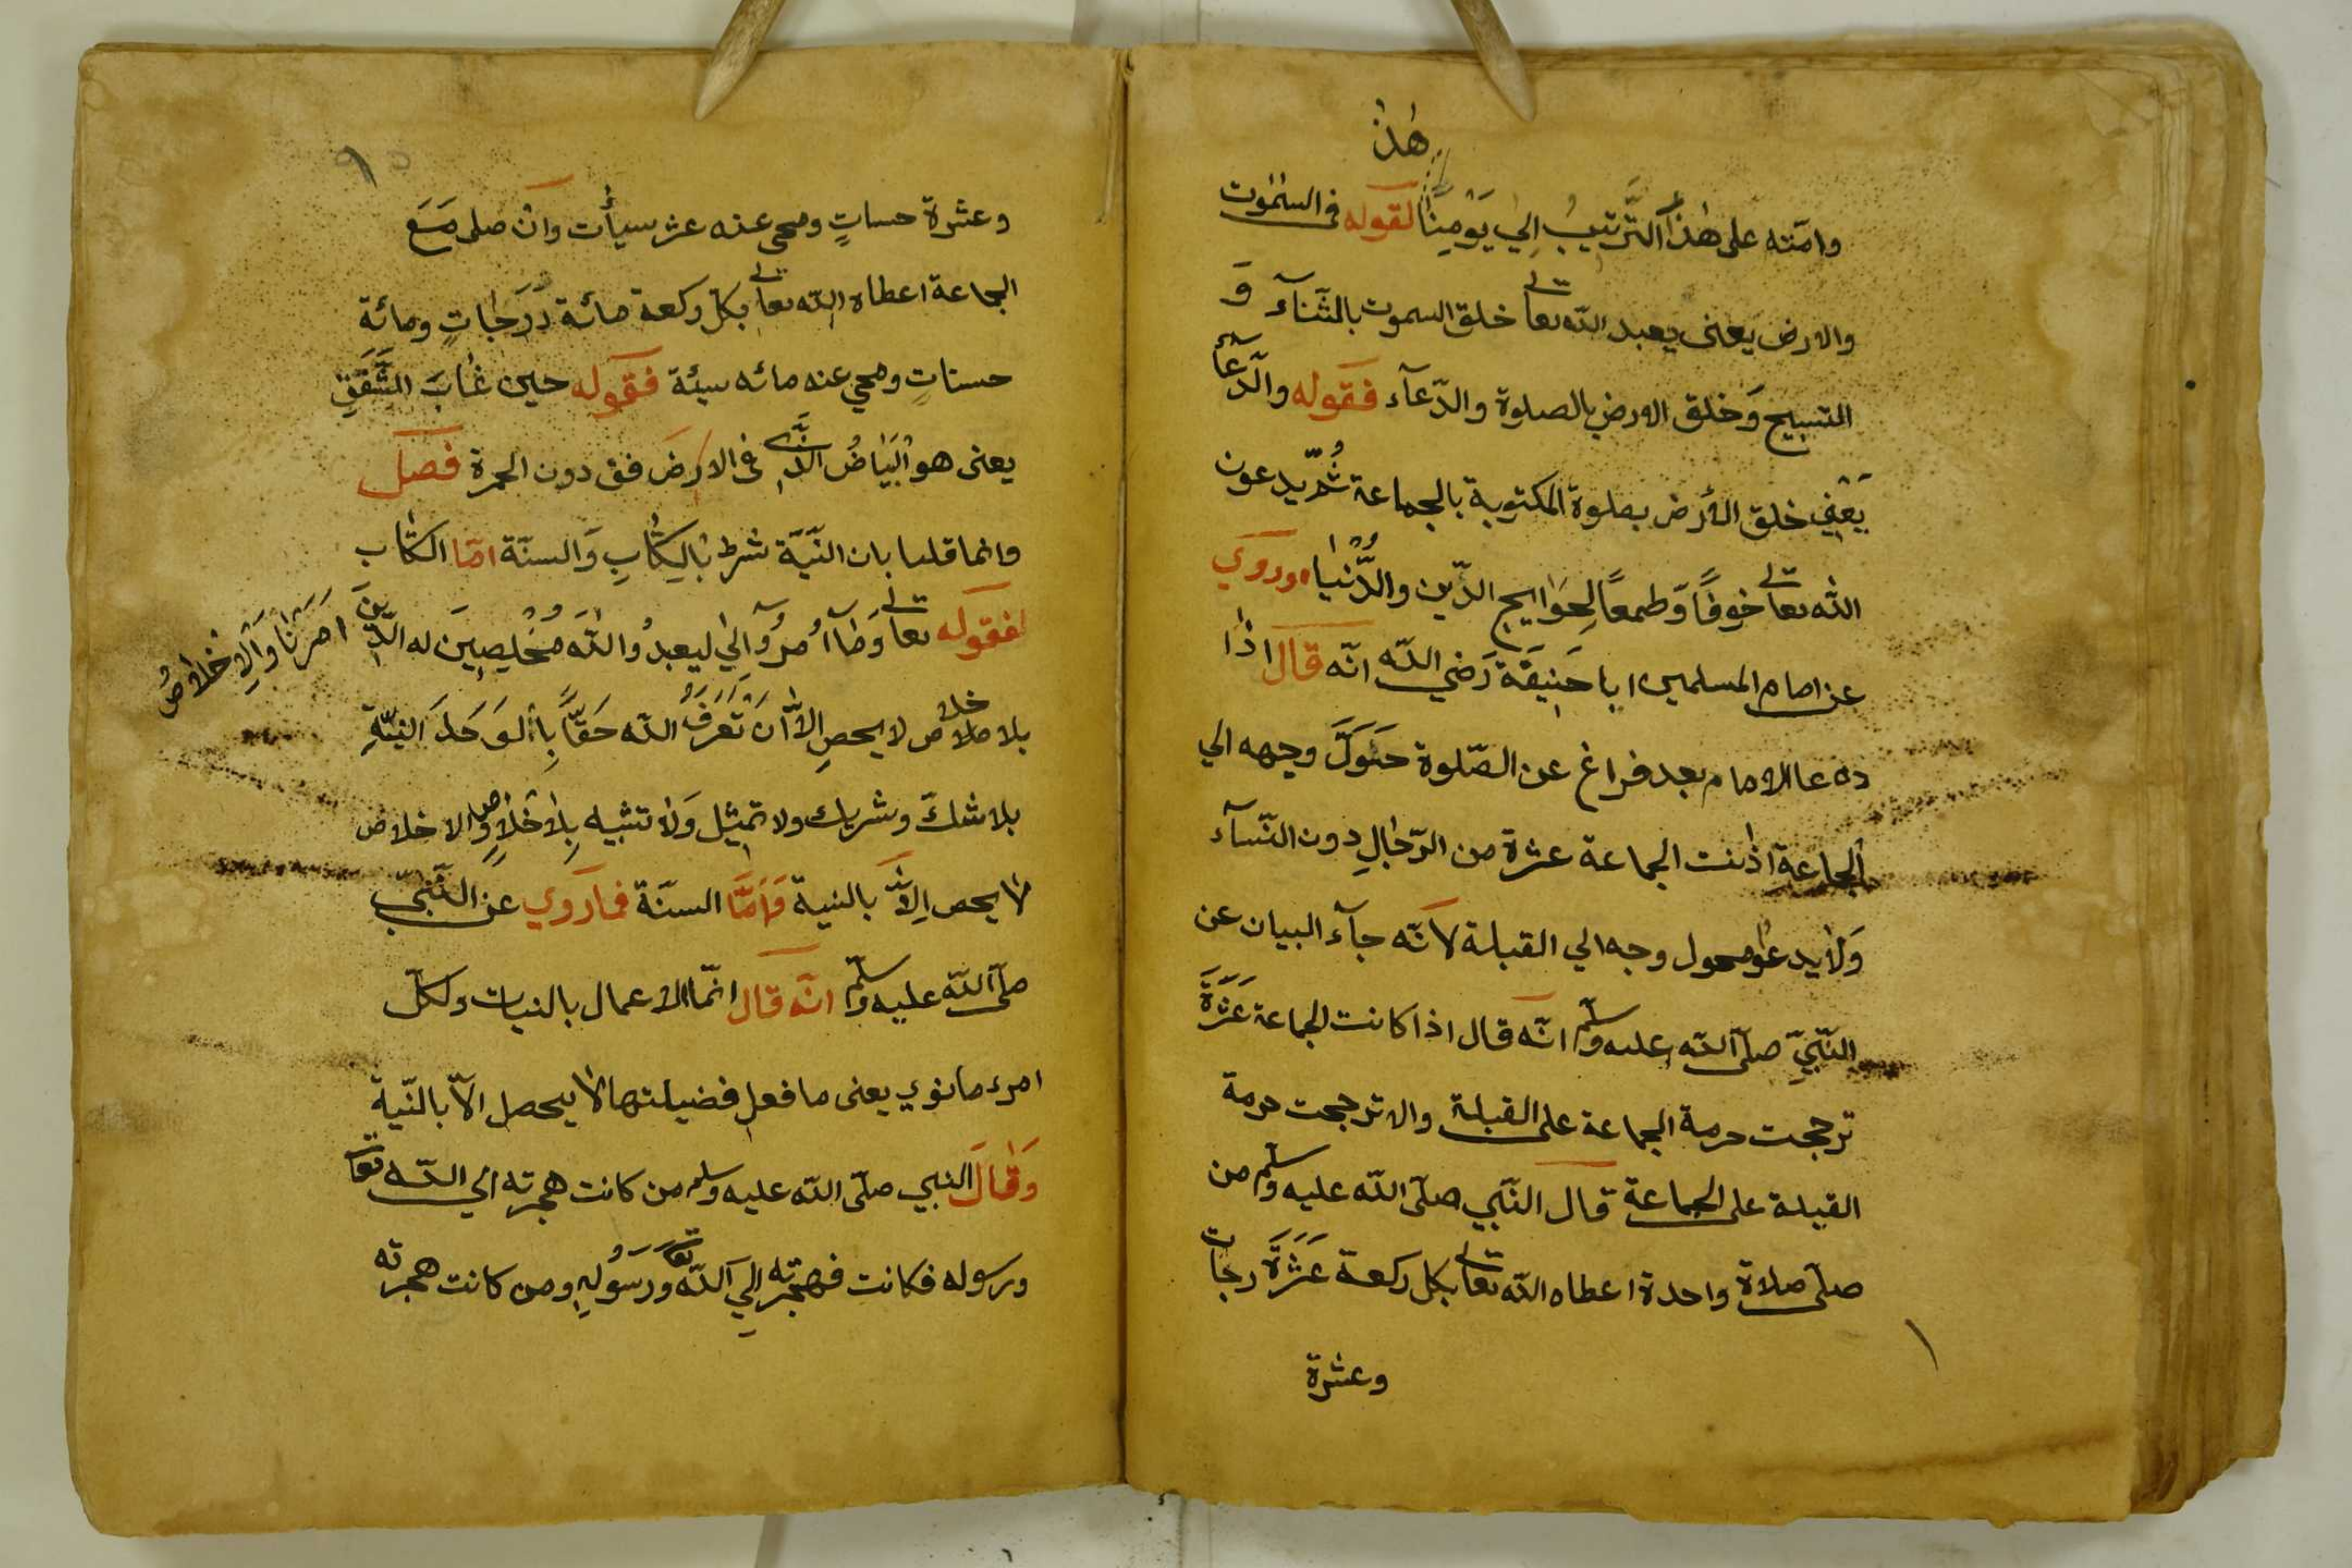 هٰذ
وامّته على هٰذا الترتيب الي يَوْمِنَا لقوله فى السمٰوت
والارض يعنى يعبد الله تعالى خلق السموت بالثَّنآء وَ
التسبيح وَخلق الارض بالصلوة والدّعآء فقوله والدّعآء
يَعْنِي خلق الأرض بصلوة المكتوبة بالجماعة ثُمّ يدعون
الله تعالى خوفًا وّطمعًا لِحَوَايج الدّين والدُّنيا وروي
عن امام المسلمين ابا حَنِيفَة رَضي الله انّه قال اذا
دعا الامام بعد فراغ عن الصّلوة حَوَلَّ وجهه الي
الجماعة اذٰ انت الجماعة عشرة من الرّجالِ دون النّسآء
وَلا يدعوا محول وجه الي القبلة لانّه جآء البيان عن
النّبيِّ صلّى الله عليه وسلّم انّه قال اذا كانت الجماعة عَشَرَةً
ترجحت حرمة الجماعة على القبلة والا ترجحت حرمة
القبلة على الجماعة قال النّبي صلّى الله عليه وسلّم من
صلّى صلاة واحدة اعطاه الله تعالى بكل ركعة عَشَرَةً رجات
وعشرة
وعشرة حسناتٍ ومحى عنه عشر سيأت وانْ صلى مَعَ
الجماعة اعطاه الله تعالى بكلّ ركعة مائة دَرَجٰاتٍ ومائة
حسناتٍ ومحي عنه مائه سيئة فقوله حين غٰابَ الشَّفَقِ
يعنى هو البَيَاضُ الذي فى الارض فق دون الحمرة فصل
وانما قلنا بان النِّيَّة شرط بالكِتٰابِ وَالسنّة امّا الكتٰاب
فقوله تعالى وَمٰآ اُمِرُوآ اِلي ليعبدُوا اللهَ مُخْلِصِينَ له الدِّينَ امرنا وَالاِخلاصُ
بلا خلاص لا يحصِ الاَّ اَنْ تَعَرَفُ الله حَقًّا بِأَلوَحَدَ النيّةِ
بلا شكّ وشريك ولا تمثيل وَلا تشبيه بِلاَخلاصِ والاخلاص
لا يحص اِلاَّ بالنية وَاَمَّا السنّة فمارَوي عن النَّبيّ
صلّى الله عليه وسلّم انّه قال انّما الاعمال بالنيات ولكلّ
امرء مانوي يعنى ما فعل فضيلتها لا يحصل الاّ بالنّية
وَقٰالَ النبي صلّى الله عليه وسلم من كانت هجرته الي الله تعا
ورسوله فكانت فهجرته اِلي الله تعا ورَسُولِهِ ومن كانت هجرته